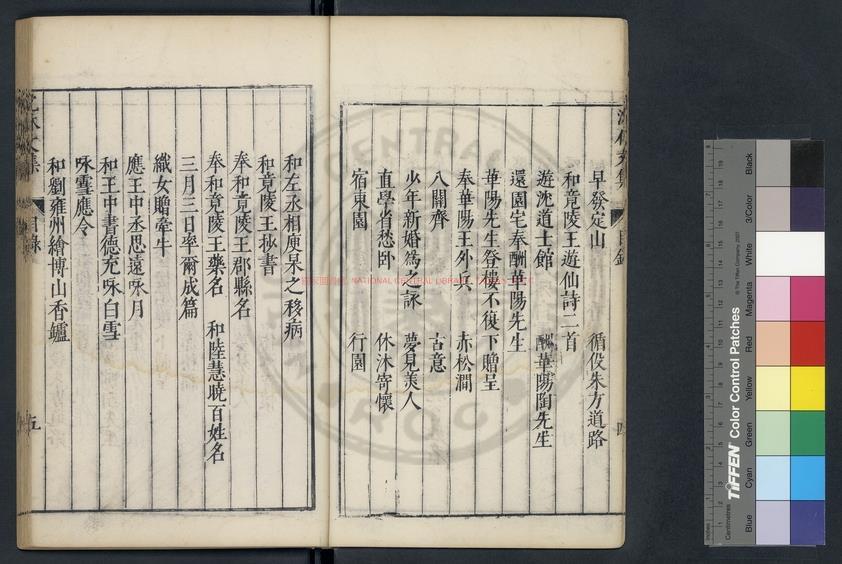 早發定山 循役朱方道路
和竟陵王遊仙詩二首
遊沈道士館 酬華陽陶先生
還園宅奉酬華陽先生
華陽先生登樓不復下贈呈
奉華陽王外兵 赤松澗
八關齊 古意
少年新婚為之詠 夢見美人
直學省愁卧 休沐寄懷
宿東園 行園
和左丞相庾杲之移病
和竟陵王秘書
奉和竟陵王郡縣名
奉和竟陵王藥名 和陸慧曉百姓名
三月三日率爾成篇
織女贈牽牛
應王中丞思遠咏月
和王中書德充咏白雪
咏雪應令
和劉雍州繪博山香鑪
目錄
五
NATIONAL CENTRAL LIBRARY
TIFFEN Color Control Patches
© The Tiffen Company, 2007
Centimetres
Blue
Cyan
Green
Yellow
Red
Magenta
White
3/Color
Black